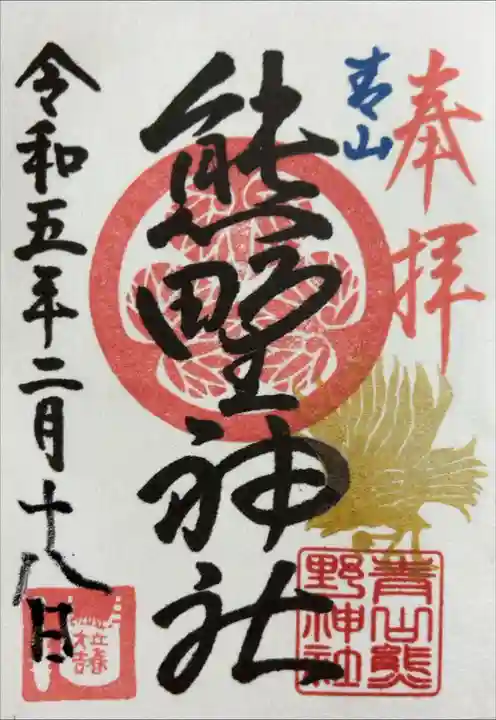 奉拝
青山
熊野神社
令和五年二月十八日
青山熊
野神社
立春
大吉